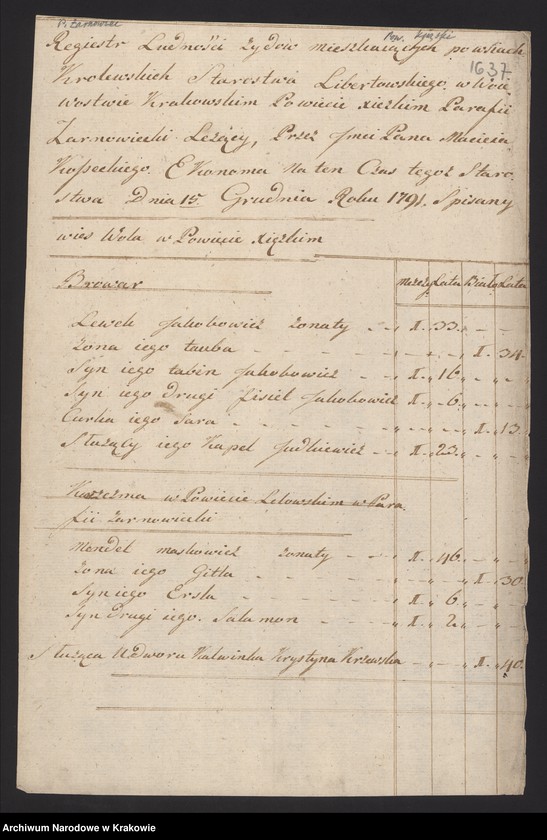 P. Żarnowiec
Pow. Xięzki
1637.
Regiestr Ludności Żydow mieszkaiących po wsiach
Krolewskich Starostwa Libertowskiego w Woie,
wostwie Krakowskim Powiecie xięzkim Parafii
Zarnowiecki Leżący, Przez Jmci Pana Macieia
Kosseckiego. Ekonoma na ten Czas tegoż Staro
stwa Dnia 15 Grudnia Roku 1791. Spisany
wieś Wola w Powiecie xięzkim
Browar
Męzczy Lata Białog Lata
Lewek Jakobowicz żonaty - - „ I. „ 33. „ - „ -
żona iego tauba - - - - „ - „ - „ I. „ 34.
Syn iego tabin Jakobowicz - - „ I. „ 16. „ - „ -
Syn iego drugi fisiel Jakobowicz „ I. „ 6. „ - „ -
Curka iego Sara - - - - „ - „ - „ I. „ 13.
Służący iego Kapel Judkiewicz - „ I. „ 23. „ - „ -
Karczma w Powiecie Lelowskim w Para
fii żarnowiecki
Mendel maskowicz żonaty - - „ I. „ 46. „ - „ -
żona iego Gitla - - - - „ - „ - „ I. „ 30.
Syn iego Ersla - - - - „ I. „ 6. „ - „ -
Syn Drugi iego Salamon - - - „ I. „ 2. „ - „ -
Słuząca U dworu Kalwinka Krystyna Krzewska - „ - „ I. „ 40.
Archiwum Narodowe w Krakowie